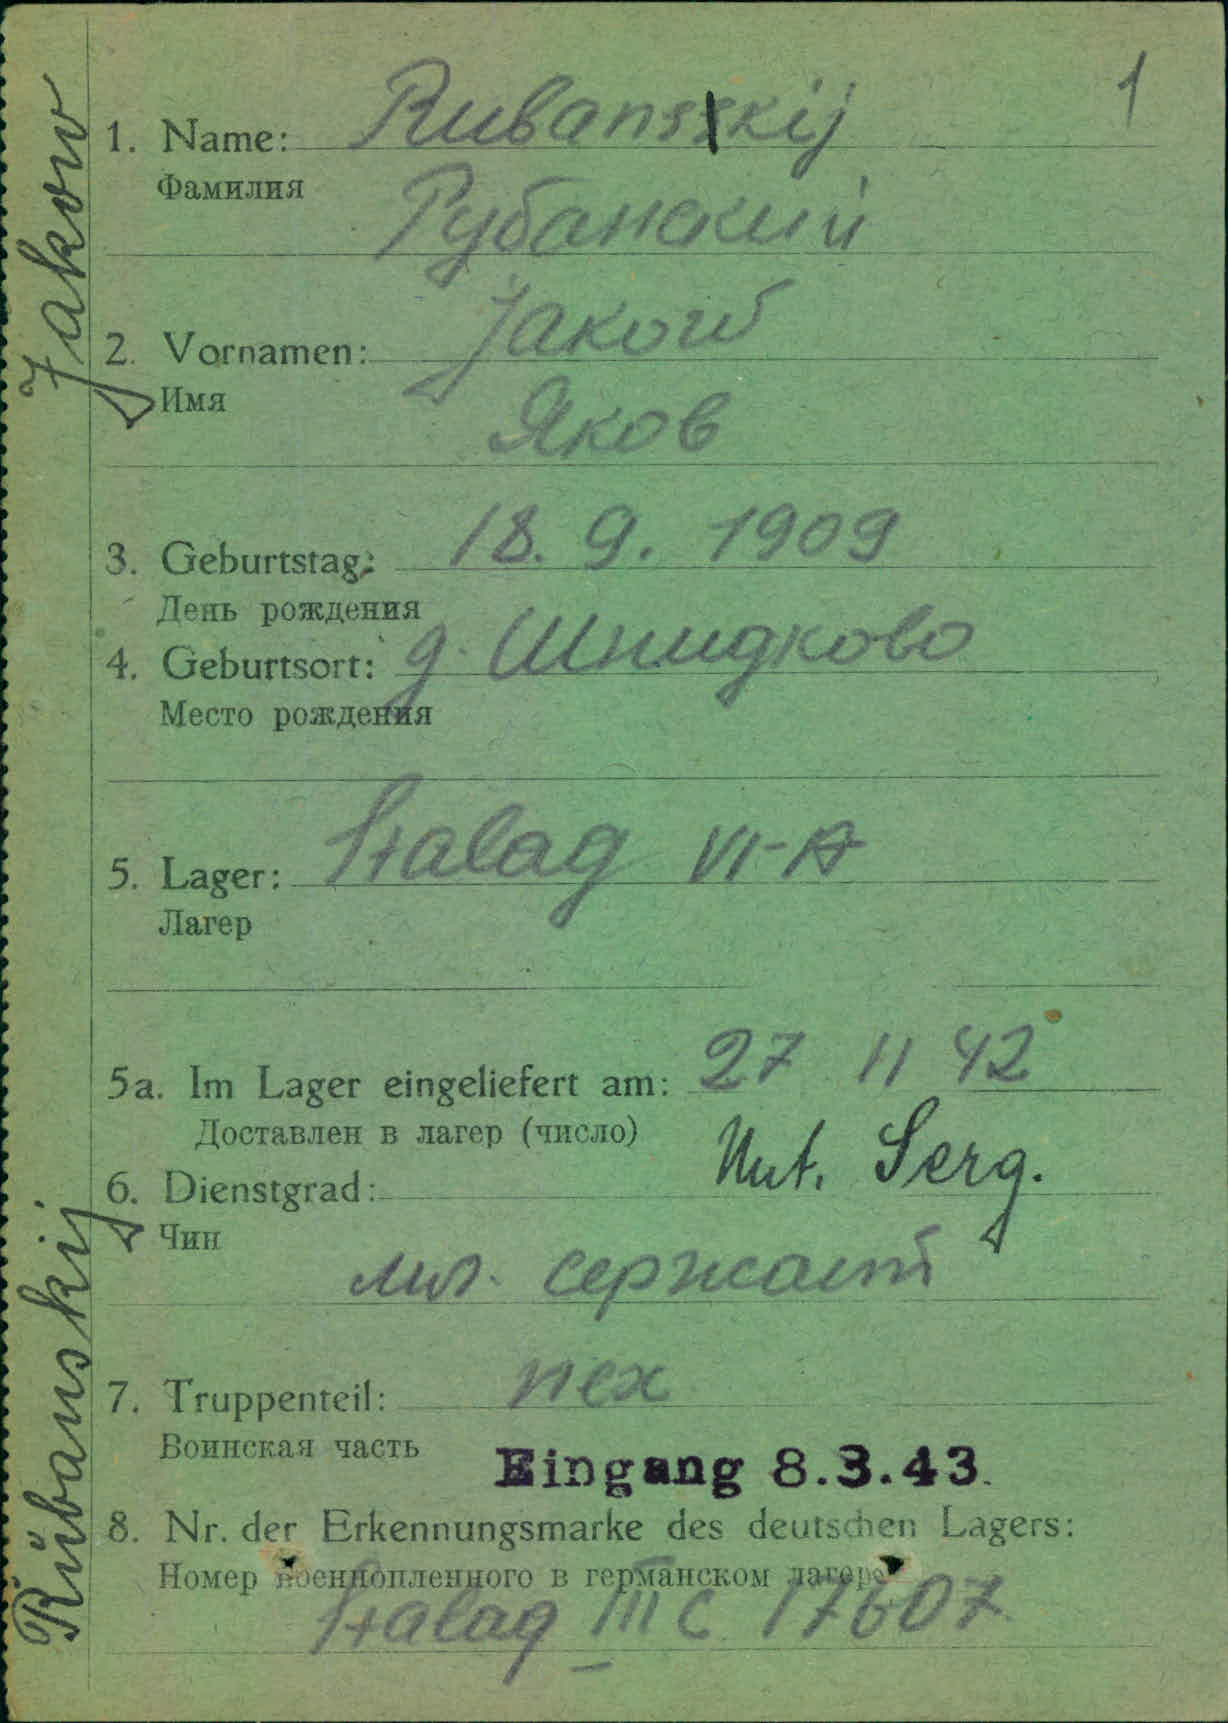 1
1. Name: Rubansskij
Фамилия
Рубанский
2. Vornamen: Jakow
Имя
Яков
3. Geburtstag: 18. 9. 1909
День рождения
4. Geburtsort: д. Шпидково
Место рождения
5. Lager: Stalag VI-A
Лагер
5a. Im Lager eingeliefert am: 27 11 42
Доставлен в лагер (число)
6. Dienstgrad: Unt. Serg.
Чин
мл. сержант
7. Truppenteil: пех
Воинская часть
Eingang 8.3.43.
8. Nr. der Erkennungsmarke des deutschen Lagers:
Номер военнопленного в германском лагере
Stalag III C 17607
Rubanskij Jakow